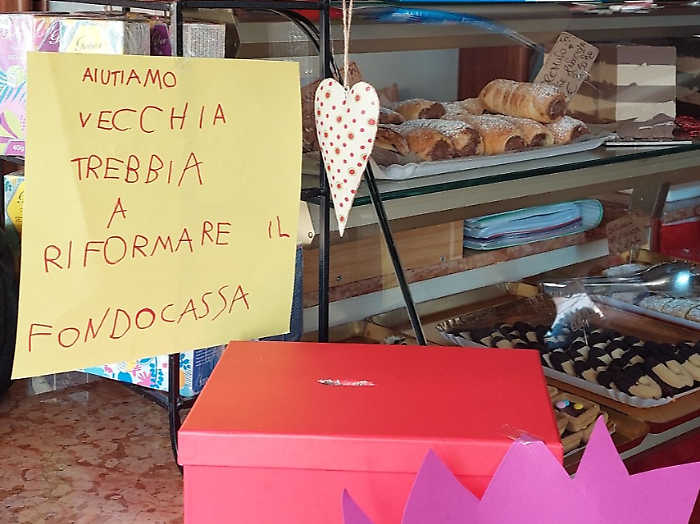 AIUTIAMO
VECCHIA
TREBBIA
A
RIFORMARE IL
FONDOCASSA